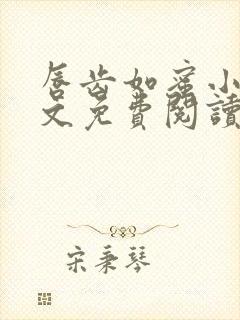 唇齿如蜜小
文免費閱讀
宋秉琴